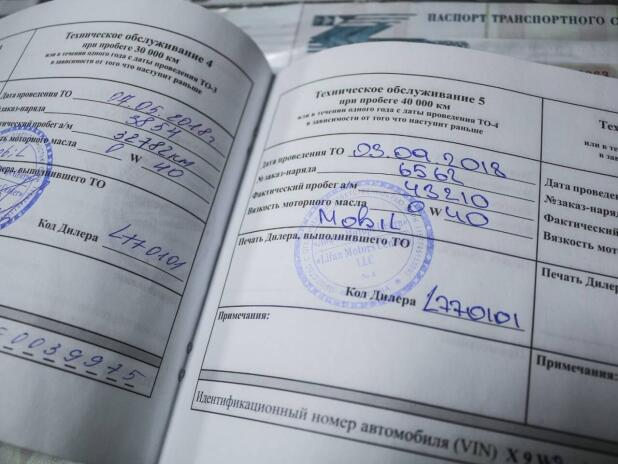 ПАСПОРТ ТРАНСПОРТНОГО С
Техническое обслуживание 4
при пробеге 30 000 км
или в течении одного года с даты проведения ТО-3
в зависимости от того что наступит раньше
Дата проведения ТО 04.05.2018г
№заказ-наряда 3854
пробег а/м 32782км
моторного масла 0 W 40
выполнившего ТО
Код Дилера L770101
0039975
Техническое обслуживание 5
при пробеге 40 000 км
или в течении одного года с даты проведения ТО-4
в зависимости от того что наступит раньше
Дата проведения ТО 03.09.2018
№заказ-наряда 6562
Фактический пробег а/м 43210
Вязкость моторного масла 0 W 40
Mobil
Печать Дилера, выполнившего ТО
«Lifan Motors
LLC
Код Дилера L770101
Примечания:
Идентификационный номер автомобиля (VIN) X 9 W
или в те
в зав
Дата проведени
№заказ-наря
Фактический
Вязкость мот
Печать Диле
Примечания: